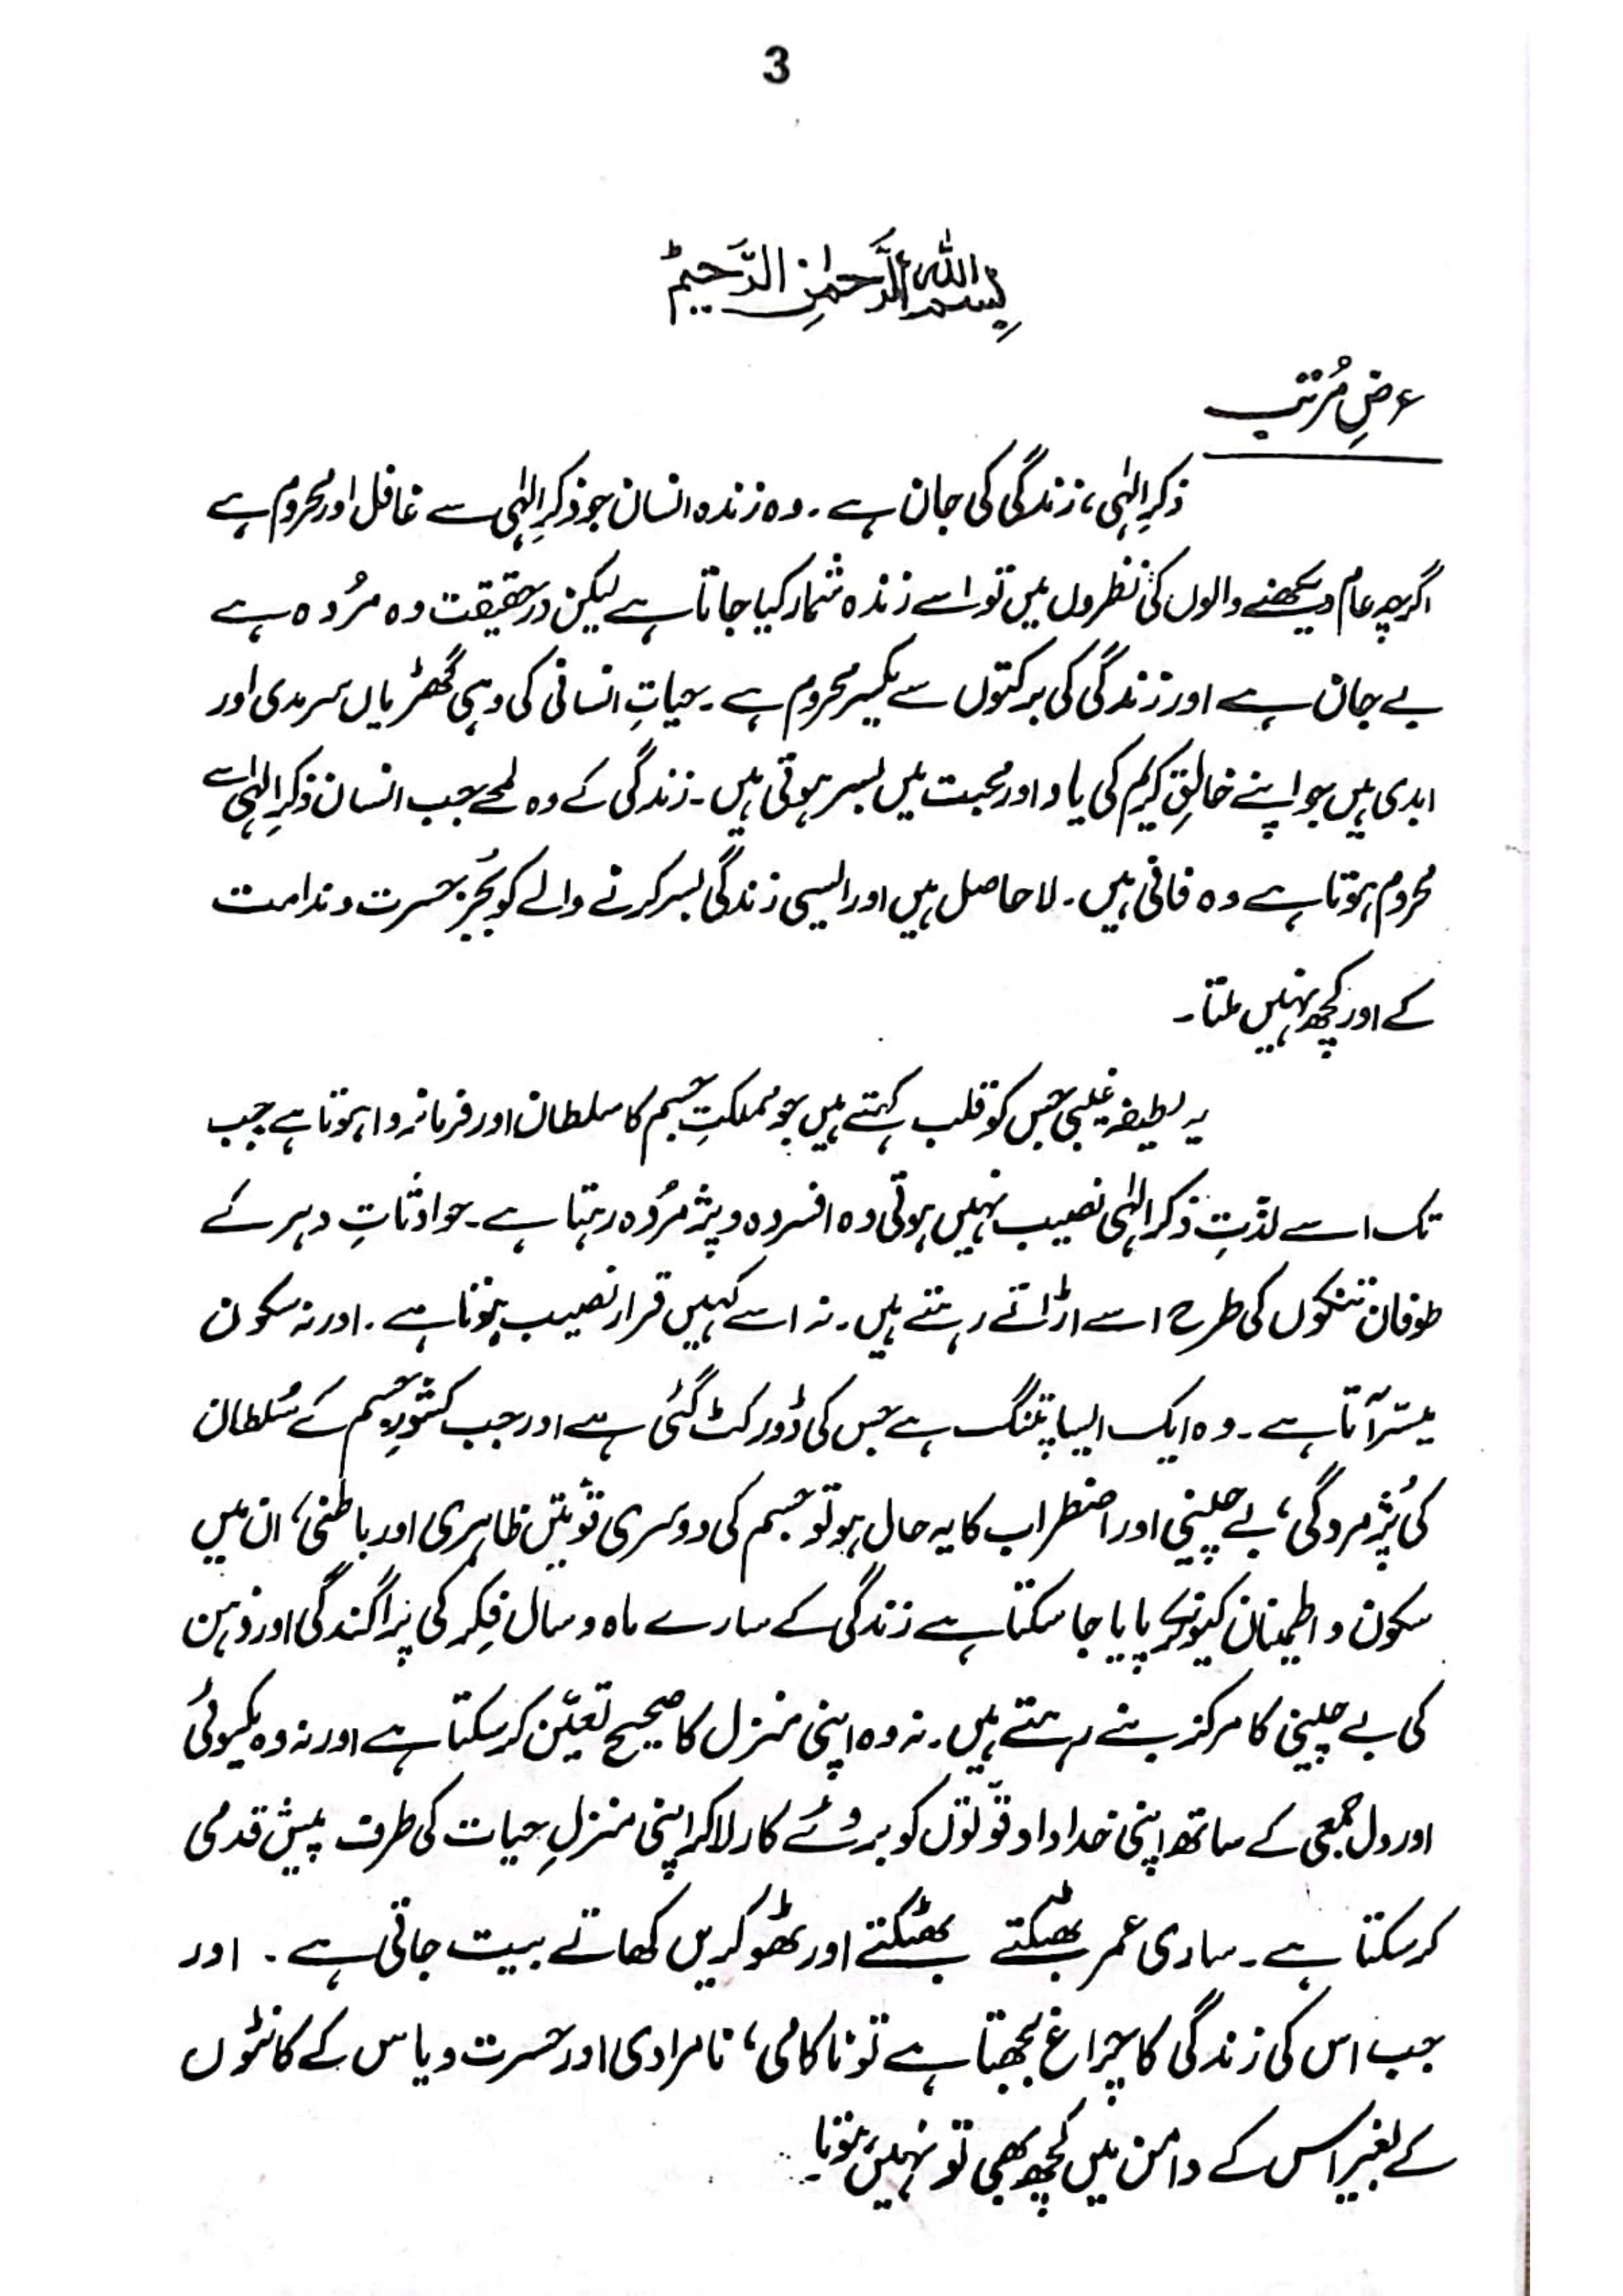 3
بِسْمِ اللّٰهِ الرَّحْمٰنِ الرَّحِيْمِ
عرضِ مُرتب
ذکرِ الہٰی، زندگی کی جان ہے۔ وہ زندہ انسان جو ذکرِ الہٰی سے غافل اور محروم ہے
اگرچہ عام دیکھنے والوں کی نظروں میں تو اسے زندہ شمار کیا جاتا ہے لیکن درحقیقت وہ مُردہ ہے
بے جان ہے اور زندگی کی برکتوں سے یکسر محروم ہے۔ حیاتِ انسانی کی وہی گھڑیاں سرمدی اور
ابدی ہیں جو اپنے خالقِ کریم کی یاد اور محبت میں بسر ہوتی ہیں۔ زندگی کے وہ لمحے جب انسان ذکرِ الہٰی سے
محروم ہوتا ہے وہ فانی ہیں۔ لا حاصل ہیں اور ایسی زندگی بسر کرنے والے کو بُجز حسرت و ندامت
کے اور کچھ نہیں ملتا۔
یہ لطیفہ غیبی جس کو قلب کہتے ہیں جو مملکتِ جسم کا سلطان اور فرمانروا ہوتا ہے جب
تک اسے لذّتِ ذکر الہٰی نصیب نہیں ہوتی وہ افسردہ و پژمُردہ رہتا ہے۔ حوادثاتِ دہر کے
طوفان تنکوں کی طرح اسے اڑاتے رہتے ہیں۔ نہ اسے کہیں قرار نصیب ہوتا ہے۔ اور نہ سکون
میسّر آتا ہے۔ وہ ایک ایسا پتنگ ہے جس کی ڈور کٹ گئی ہے اور جب کشورِ جسم کے سُلطان
کی پُژمردگی، بے چینی اور اضطراب کا یہ حال ہو تو جسم کی دوسری قوّتیں ظاہری اور باطنی، ان میں
سکون و اطمینان کیونکر پایا جا سکتا ہے زندگی کے سارے ماہ و سال فِکر کی پراگندگی اور ذہن
کی بے چینی کا مرکز بنے رہتے ہیں۔ نہ وہ اپنی منزل کا صحیح تعیّن کر سکتا ہے اور نہ وہ یکسوئی
اور دل جمعی کے ساتھ اپنی خداداد قوّتوں کو بروئے کار لا کر اپنی منزلِ حیات کی طرف پیش قدمی
کر سکتا ہے۔ ساری عمر بھٹکتے بھٹکتے اور ٹھوکریں کھاتے بیت جاتی ہے۔ اور
جب اس کی زندگی کا چراغ بجھتا ہے تو ناکامی، نامرادی اور حسرت و یاس کے کانٹوں
کے بغیر اس کے دامن میں کچھ بھی تو نہیں ہوتا۔